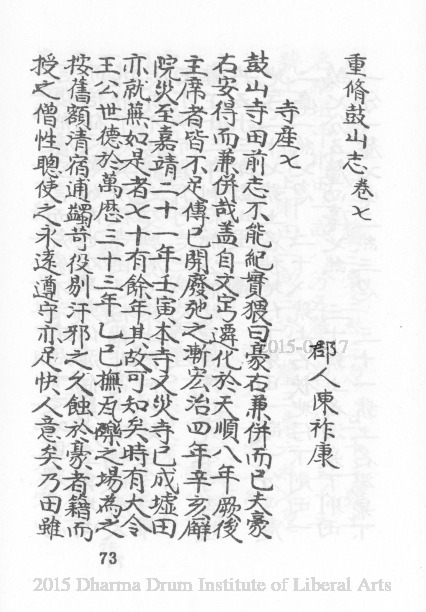 重脩鼓山志卷七
郡人陳祚康
寺産七
鼓山寺田前志不能紀實猥曰豪右兼併而已夫豪
右安得而兼併哉盖自文穹遷化於天順八年厥後
主席者皆不足傳已開廢弛之漸宏治四年辛亥廨
院災至嘉靖二十一年壬寅本寺又災寺已成墟田
亦就蕪如是者七十有餘年其故可知矣時有大令
王公世德於萬厯三十三年乙巳撫瓦礫之場為之
按舊額清宿逋蠲苛役剔汗邪之久蝕於豪者籍而
授之僧性聰使之永遠遵守亦足快人意矣乃田雖
73
2015 Dharma Drum Institute of Liberal Arts